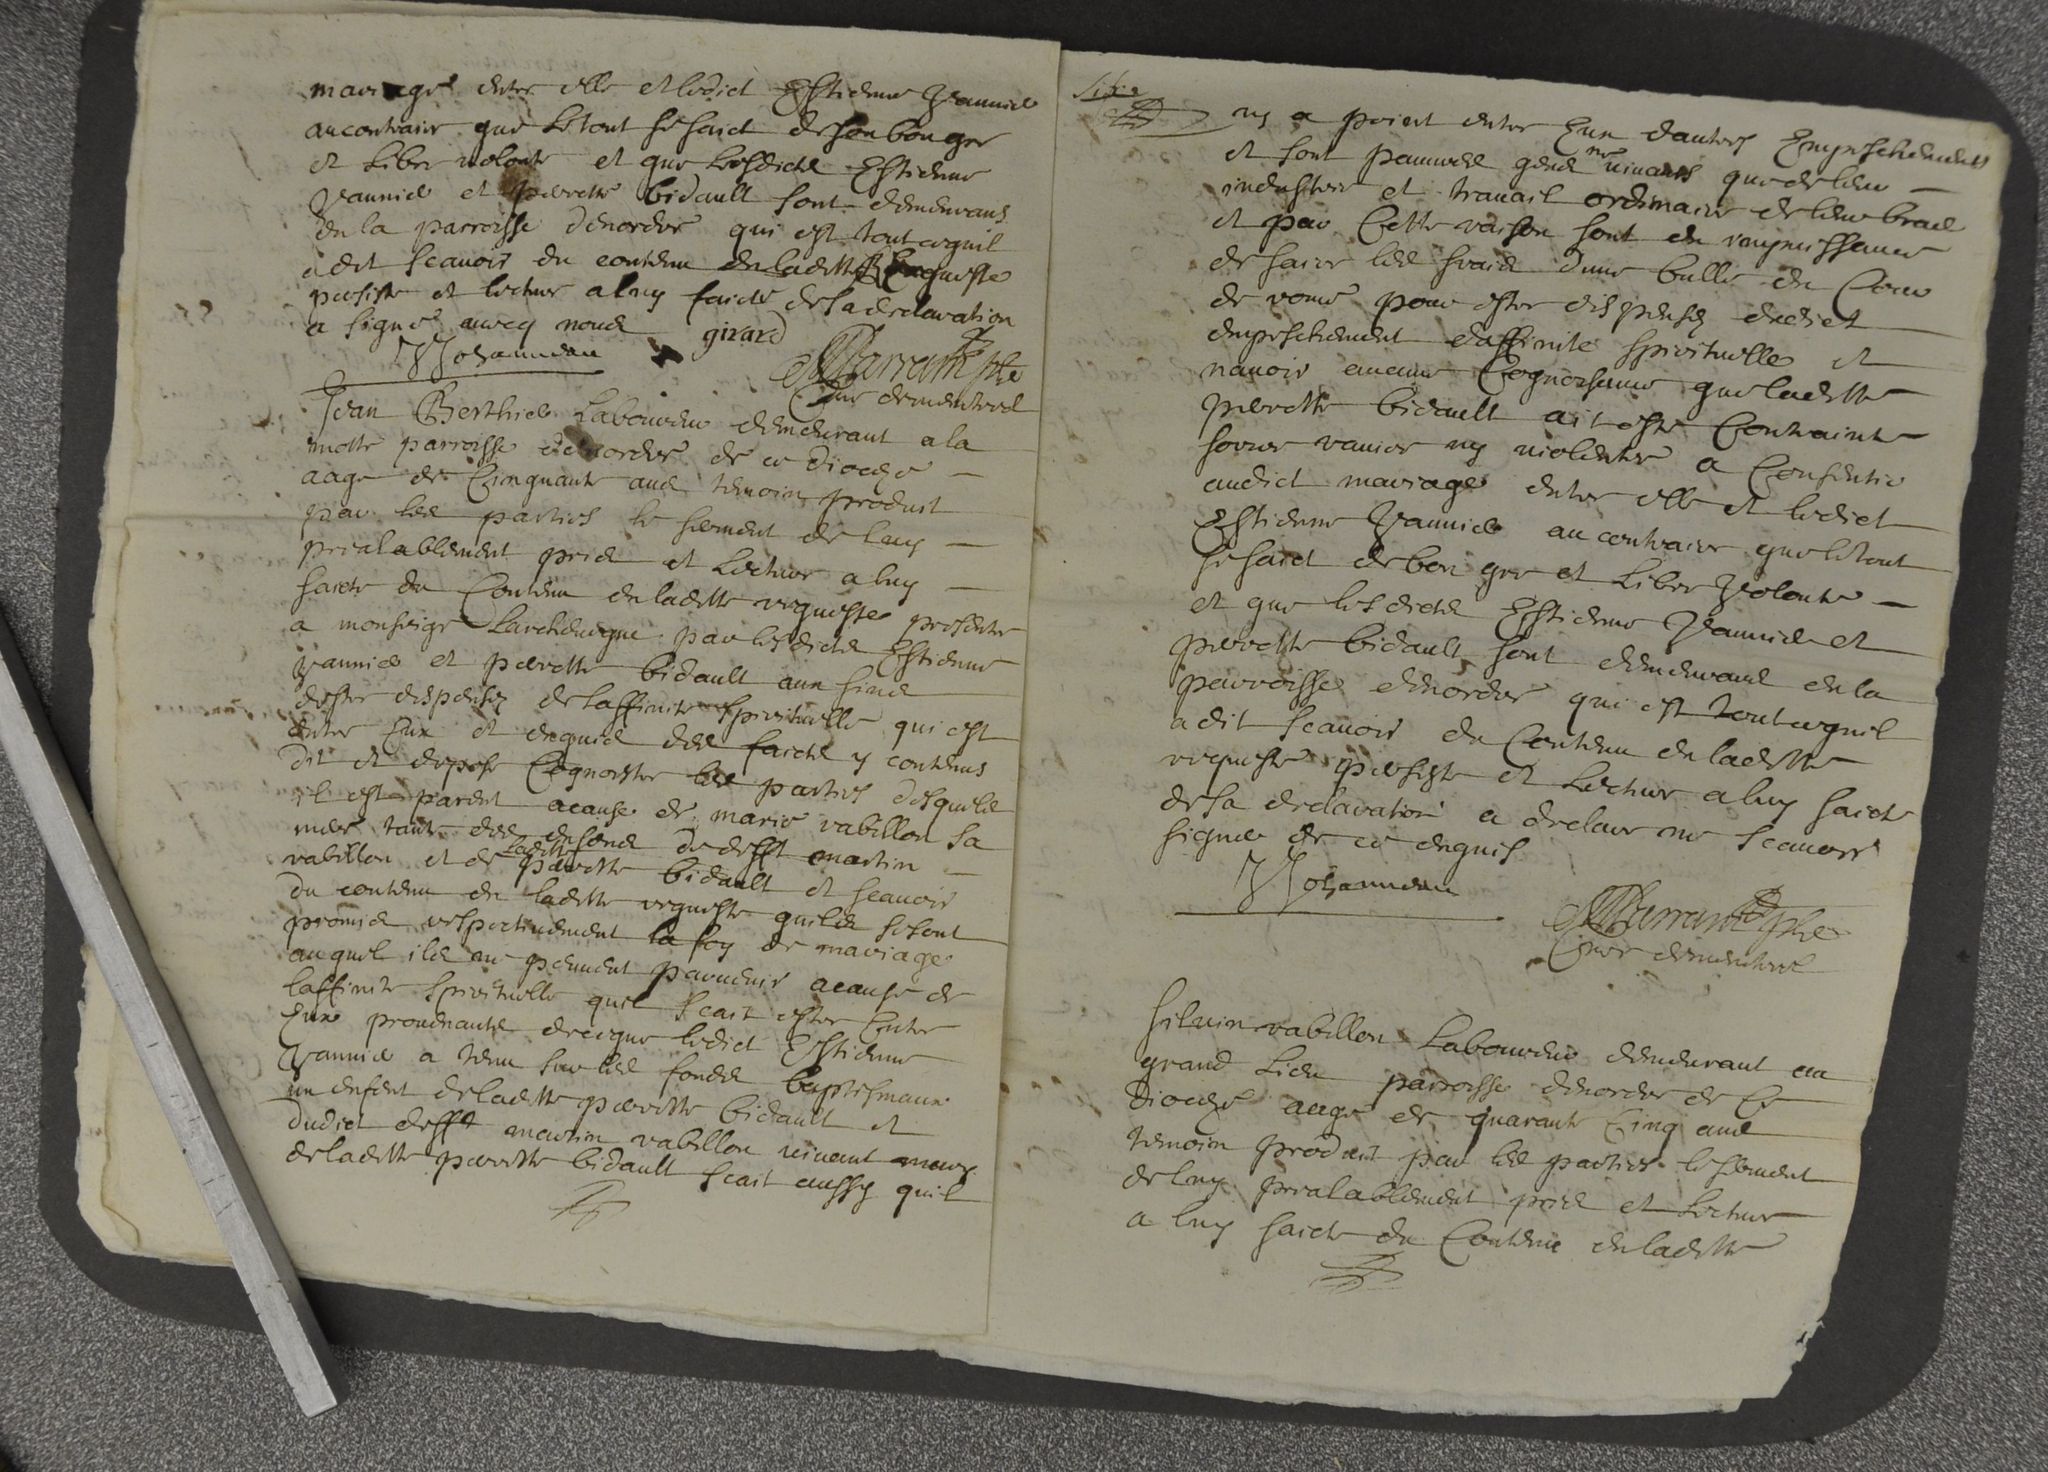 mariage entre elle et ledict Estienne Jannice
au contraire que le tout se faict de son bon gre
et libre volonte et que lesdicts Estienne
Jannice et perrette bidault sont demeurans
en la parroisse denordre qui est tout ce quil
a dit scavoir du contenu en ladette Requeste
persiste et lecture a luy faicte de sa declaration
a signe avecq nous girard
Johanneau
Jean Berthier Laboureur demeurant a la
motte parroisse denordre de ce dioceze
aage de Cinquante ans temoin produit
par les parties le serment de luy
prealablement pris et Lecture a luy
faicte du Contenu en ladette requeste presentee
a monseigr Larchevegue par lesdicts Estienne
Jannice et perrette bidault aux fins
destre dispensez de laffinite spirituelle qui est
entre Eux et enquis des faicts y contenus
dit et depose Cognoistre les parties desquels
il est parent a cause de marie rabillon sa
mere tante des enfans de defft martin
rabillon et de ladette perrette bidault et scavoir
du contenu en ladette requeste quils se sont
promis respectivement la foy de mariage
auquel ils ne peuvent parvenir a cause de
laffinite spirituelle quil scait estre Entre
Eux provenante de ce que ledict Estienne
Jannice a tenu sur les fonds baptismaux
un enfent de ladette perrette bidault et
dudict defft martin rabillon vivant mary
de ladette perrette bidault scait aussy quil
ny a point entre Eux dautres Empeschements
et sont pauvres gens ne vivants que de leur
industrie et travail ordinaire de leur bras
et par Cette raison sont en impuissance
de faire les frais dune bulle en Cour
de rome pour estre dispensez dudict
empeschement daffinite spirituelle et
navoir aucune Cognoissance que ladette
perrette bidault ait este Contrainte
forcee ravie ny violentee a Consentir
audict mariage entre elle et ledict
Estienne Jannice au contraire que le tout
se faict de bon gre et Libre volonte
et que lesdicts Estienne Jannice et
perrette bidault sont demeurans en la
parroisse denordre qui est tout ce quil
a dit scavoir du Contenu en ladette
requeste persiste et Lecture a luy faicte
de sa declaration a declare ne scavoir
signer de ce enquis
Johanneau
silvin rabillon Laboureur demeurant au
grand Lieu parroisse denordre de Ce
dioceze aage de quarante Cinq ans
temoin produit par les parties le serment
de luy prealablement pris et Lecture
a luy faicte du Contenu en ladette